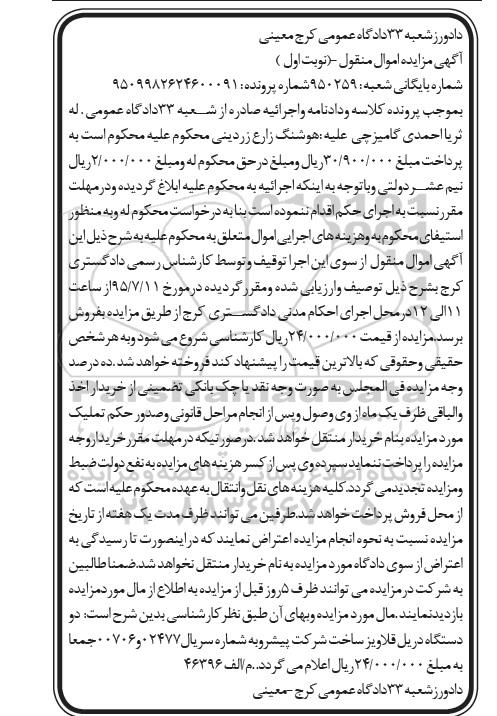 دادورز شعبه ۳۳ دادگاه عمومی کرج معینی
آگهی مزایده اموال منقول -(نوبت اول )
شماره بایگانی شعبه: ۹۵۰۲۵۹ شماره پرونده: ۹۵۰۹۹۸۲۶۲۴۶۰۰۰۹۱
بموجب پرونده کلاسه ودادنامه واجرائیه صادره از شعبه ۳۳ دادگاه عمومی . له
ثریا احمدی گامیزچی علیه :هوشنگ زارع زردینی محکوم علیه محکوم است به
پرداخت مبلغ ۳۰/۹۰۰/۰۰۰ ریال ومبلغ درحق محکوم له ومبلغ ۲/۰۰۰/۰۰۰ ریال
نیم عشر دولتی وباتوجه به اینکه اجرائیه به محکوم علیه ابلاغ گردیده ودرمهلت
مقرر نسبت به اجرای حکم اقدام ننموده است بنا به درخواست محکوم له وبه منظور
استیفای محکوم به وهزینه های اجرایی اموال متعلق به محکوم علیه به شرح ذیل این
آگهی اموال منقول از سوی این اجرا توقیف وتوسط کارشناس رسمی دادگستری
کرج بشرح ذیل توصیف وارزیابی شده ومقررگردیده درمورخ ۹۵/۷/۱۱ از ساعت
۱۱الی ۱۲ درمحل اجرای احکام مدنی دادگستری کرج از طریق مزایده بفروش
برسد.مزایده از قیمت ۲۴/۰۰۰/۰۰۰ ریال کارشناسی شروع می شود وبه هرشخص
حقیقی وحقوقی که بالاترین قیمت را پیشنهاد کند فروخته خواهد شد .ده درصد
وجه مزایده فی المجلس به صورت وجه نقد یا چک بانکی تضمینی از خریدار اخذ
والباقی ظرف یک ماه از وی وصول وپس از انجام مراحل قانونی وصدور حکم تملیک
مورد مزایده بنام خریدار منتقل خواهد شد .درصورتیکه درمهلت مقرر خریدار وجه
مزایده را پرداخت ننماید سپرده وی پس از کسر هزینه های مزایده به نفع دولت ضبط
ومزایده تجدید می گردد.کلیه هزینه های نقل وانتقال به عهده محکوم علیه است که
از محل فروش پرداخت خواهد شد.طرفین می توانند ظرف مدت یک هفته از تاریخ
مزایده نسبت به نحوه انجام مزایده اعتراض نمایند که دراینصورت تا رسیدگی به
اعتراض از سوی دادگاه مورد مزایده به نام خریدار منتقل نخواهد شد.ضمنا طالبین
به شرکت درمزایده می توانند ظرف ۵روز قبل از مزایده به اطلاع از مال مورد مزایده
بازدید نمایند .مال مورد مزایده وبهای آن طبق نظر کارشناسی بدین شرح است: دو
دستگاه دریل قلاویز ساخت شرکت پیشرو به شماره سریال ۰۲۴۷۷ و۰۰۷۰۶ جمعا
به مبلغ ۲۴/۰۰۰/۰۰۰ ریال اعلام می گردد..م/الف ۴۶۳۹۶
دادورز شعبه ۳۳ دادگاه عمومی کرج -معینی
ParsNamadData